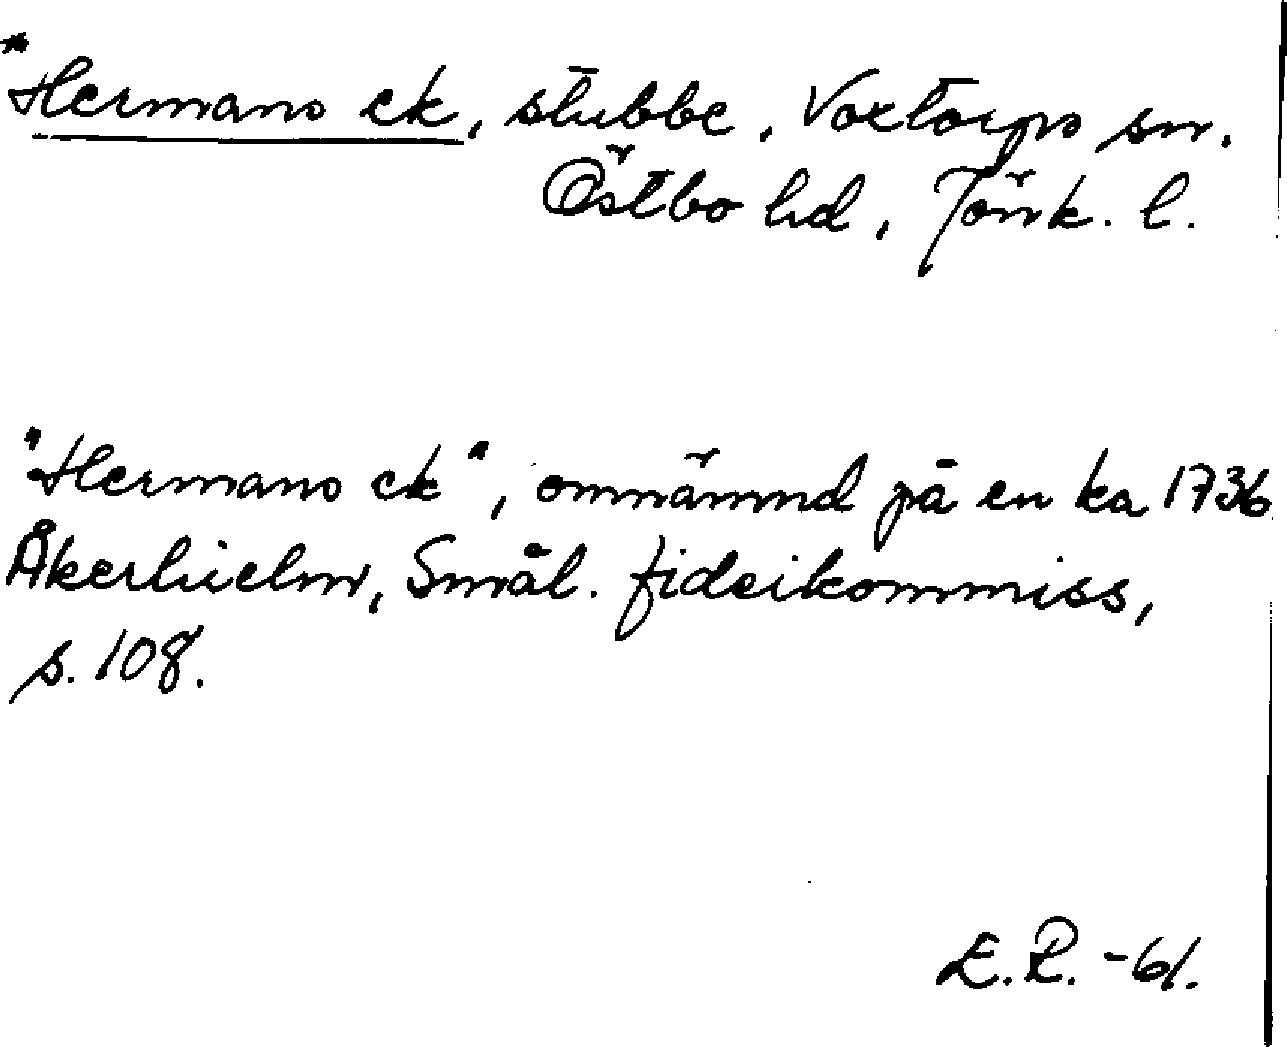 *Hermans ek, stubbe, Voxtorps sn.
Östbo hd, Jönk. l.
"Hermans ek", omnämnd på en ka 1736
Åkerhielm, Smål. fideikommiss,
s. 108.
E.R. -61.